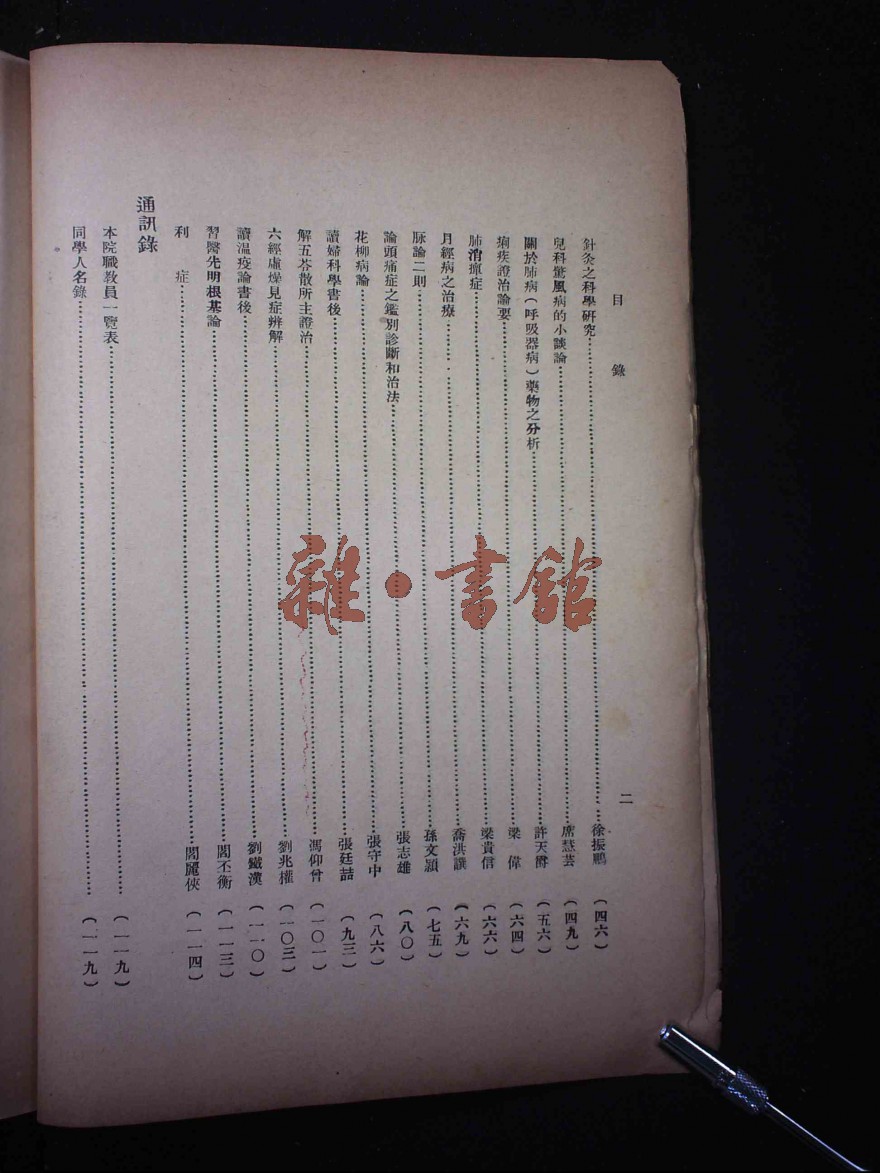 目錄
二
針灸之科學研究……徐振鵬（四六）
兒科驚風病的小談論……席慧芸（四九）
關於肺病（呼吸器病）藥物之分析……許天爵（五六）
痢疾證治論要……梁偉（六四）
肺消癉症……梁貴信（六六）
月經病之治療……喬洪譔（六九）
脉論二則……孫文潁（七五）
論頭痛症之鑑別診斷和治法……張志雄（八〇）
花柳病論……張守中（八六）
讀婦科學書後……張廷喆（九三）
解五苓散所主證治……馮仰曾（一〇一）
六經虛燥見症辨解……劉兆權（一〇三）
讀溫疫論書後……劉鐵漢（一一〇）
習醫先明根基論……閻丕衡（一一三）
利症……閻麗俠（一一四）
通訊錄
本院職教員一覽表……（一一九）
同學人名錄……（一一九）
雜·書館